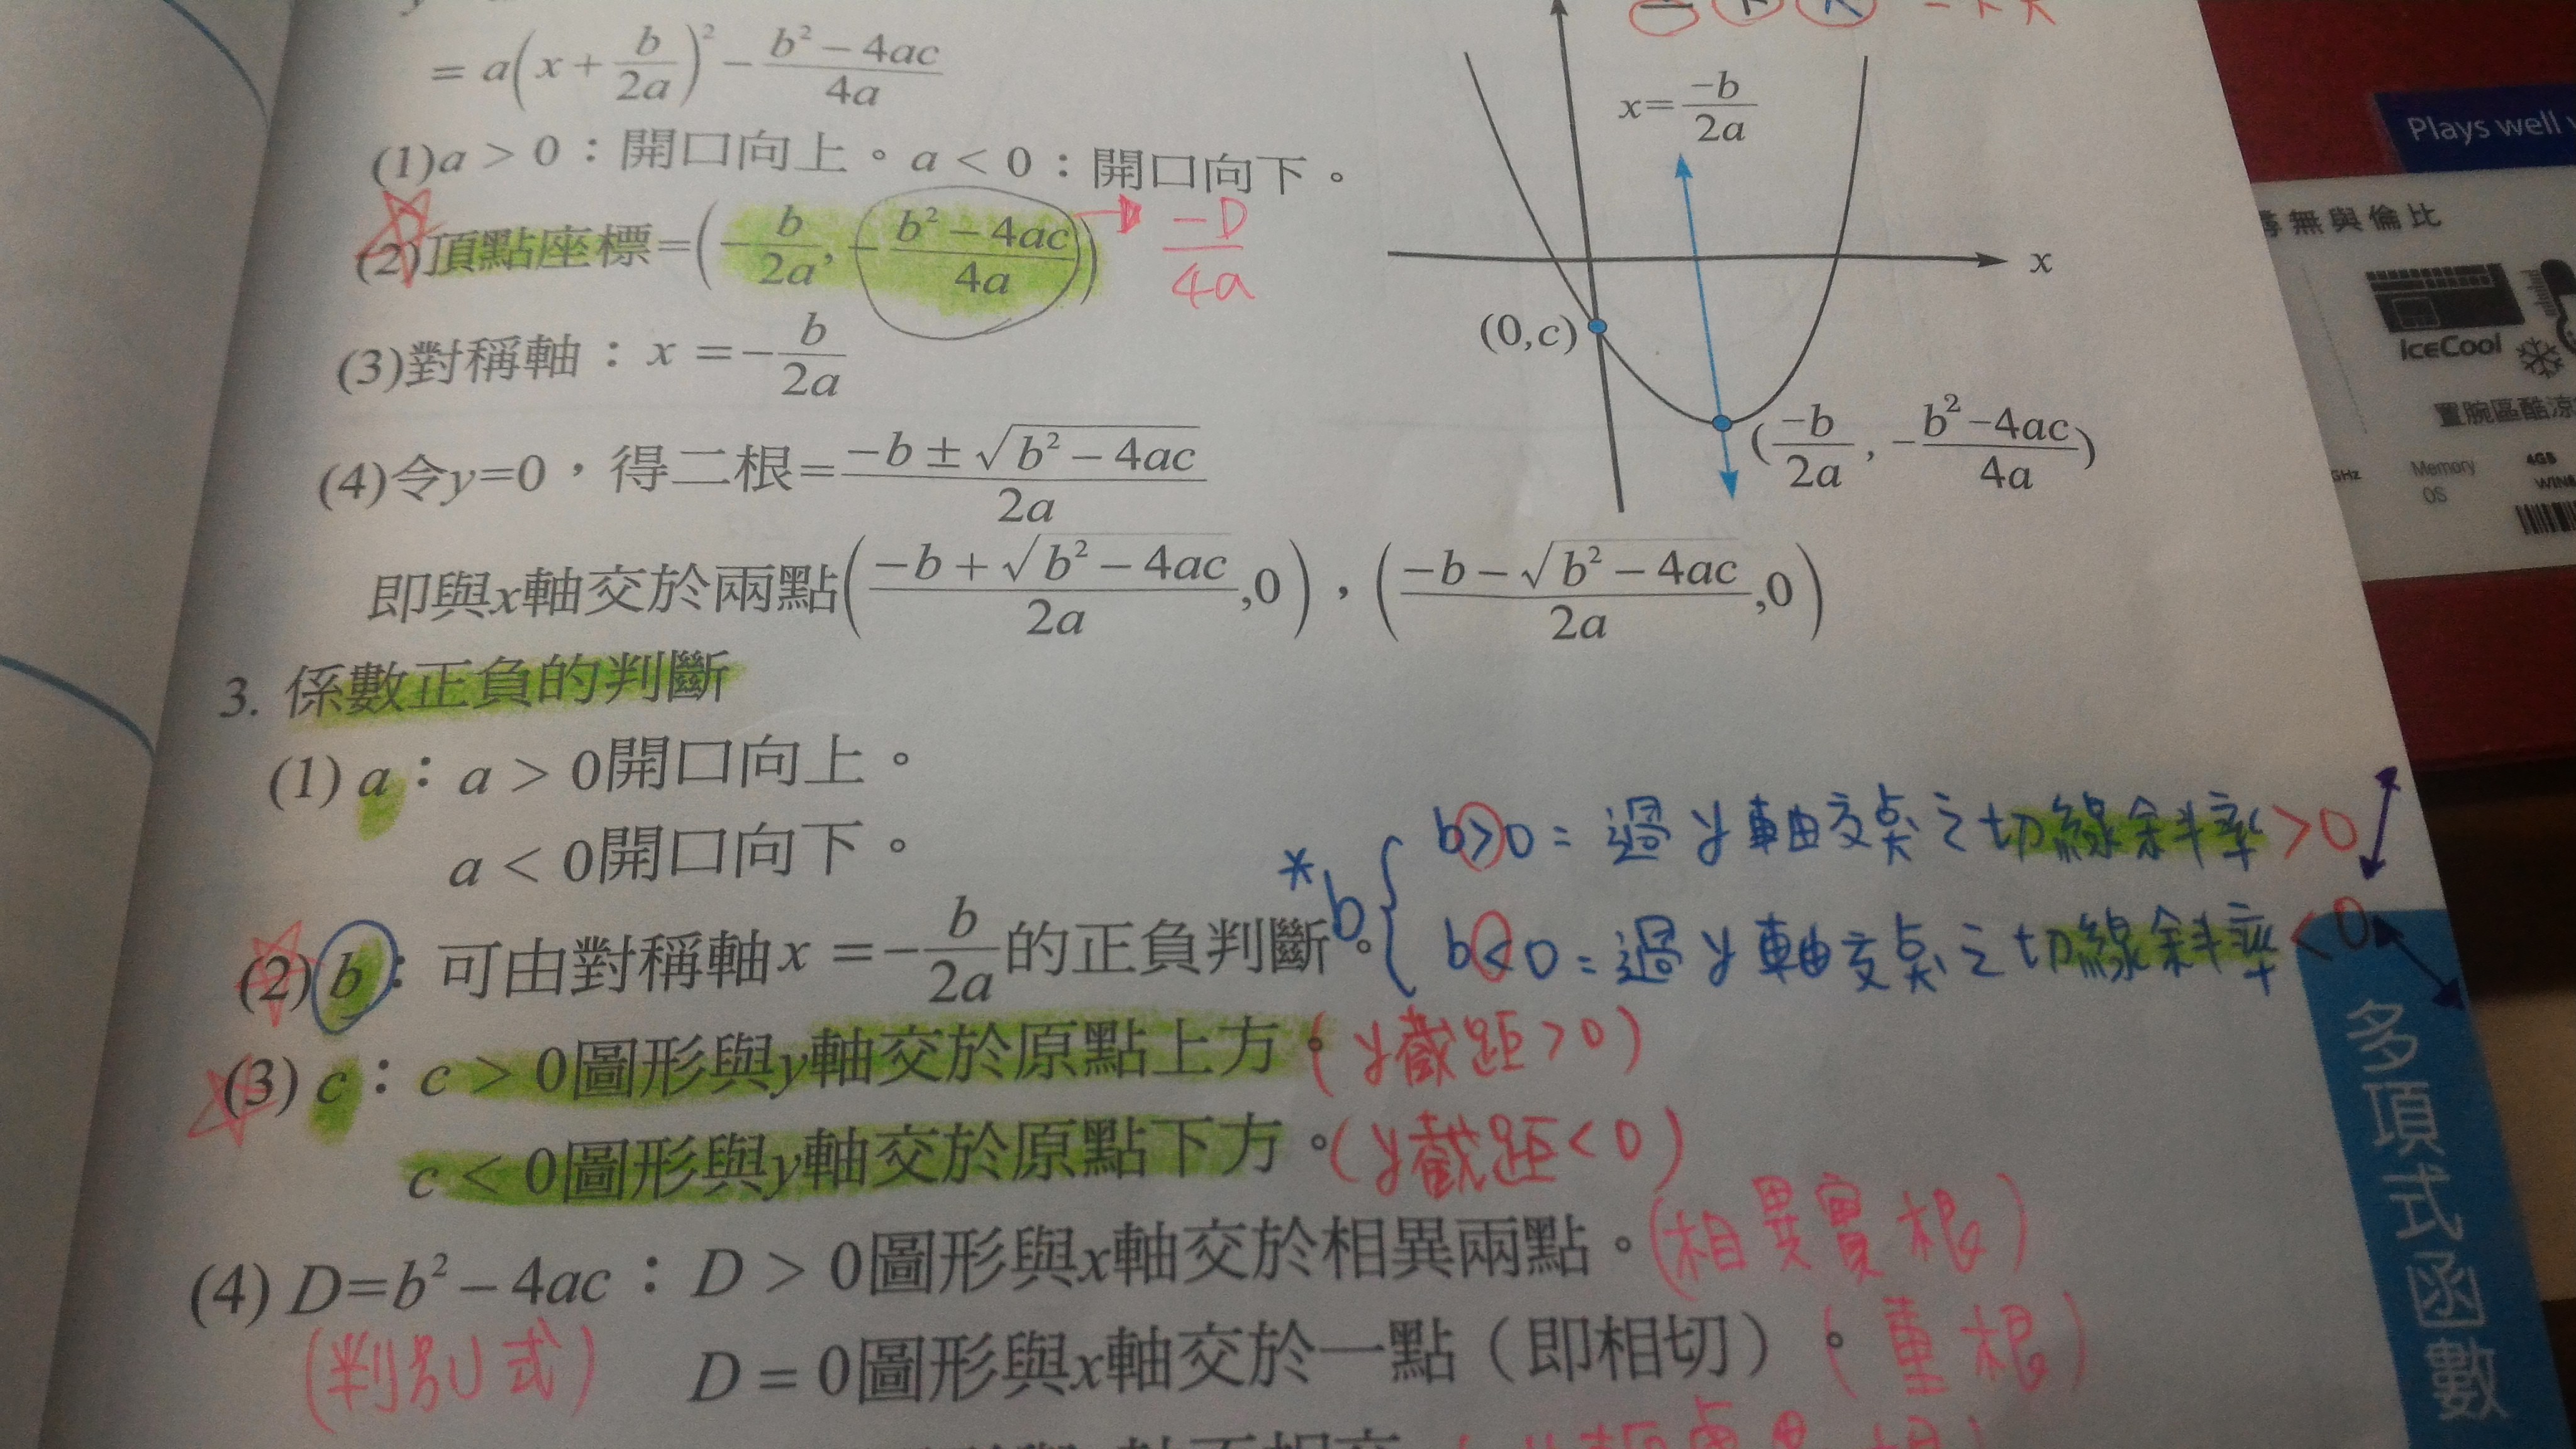 = a(x + b/2a)² − (b² − 4ac)/4a
(1)a > 0：開口向上。a < 0：開口向下。
(2)頂點座標=(−b/2a, −(b² − 4ac)/4a) → −D/4a
(3)對稱軸：x = −b/2a
(4)令y=0，得二根=(−b ± √(b² − 4ac))/2a
即與x軸交於兩點((−b + √(b² − 4ac))/2a ,0)，((−b − √(b² − 4ac))/2a ,0)
x = −b/2a
x
(0,c)
(−b/2a , −(b² − 4ac)/4a)
3. 係數正負的判斷
(1) a：a > 0開口向上。
a < 0開口向下。
(2) b：可由對稱軸x = −b/2a的正負判斷。
*b { b>0 = 過y軸交點之切線斜率>0
b<0 = 過y軸交點之切線斜率<0
(3) c：c > 0圖形與y軸交於原點上方。(y截距>0)
c < 0圖形與y軸交於原點下方。(y截距<0)
(4) D=b² − 4ac：D > 0圖形與x軸交於相異兩點。(相異實根)
(判別式) D = 0圖形與x軸交於一點（即相切）。(重根)
多項式函數
Plays well
無與倫比
IceCool
置腕區酷涼
GHz
Memory
4GB
OS